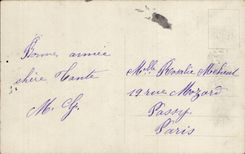 Bonne année
chère Tante
M. G.
Melle Rosalie Micheul
19 rue Mozard
Passy
Paris